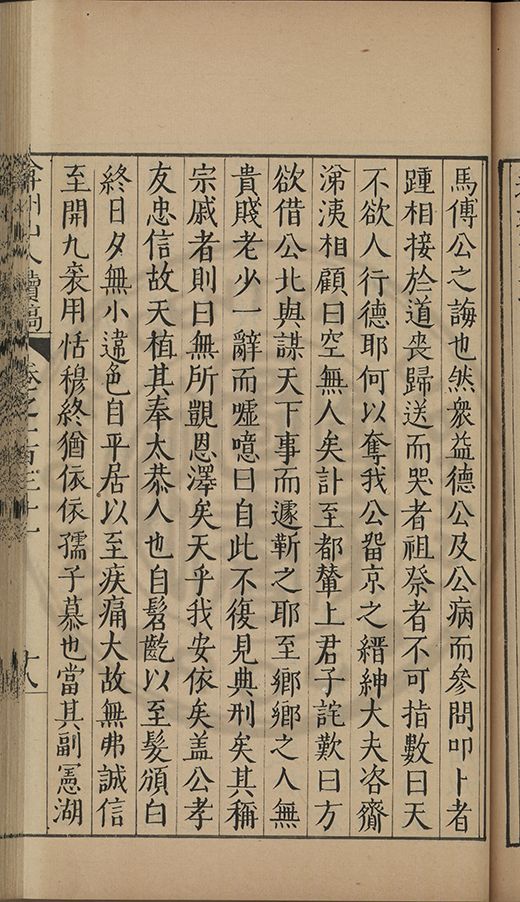 馬傅公之誨也然衆益德公及公病而參問叩卜者
踵相接於道喪歸送而哭者祖祭者不可指數曰天
不欲人行德耶何以奪我公畱京之縉紳大夫咨齎
涕洟相顧曰空無人矣訃至都輦上君子詫歎曰方
欲借公北與謀天下事而遽靳之耶至鄉鄉之人無
貴賤老少一辭而噓噫曰自此不復見典刑矣其稱
宗戚者則曰無所覬恩澤矣天乎我安依矣盖公孝
友忠信故天植其奉太恭人也自髫齔以至髮頒白
終日夕無小違色自平居以至疾痛大故無弗誠信
至開九袠用恬穆終猶依依孺子慕也當其副憲湖
弇州山人續稿 卷之一百三十一 十八